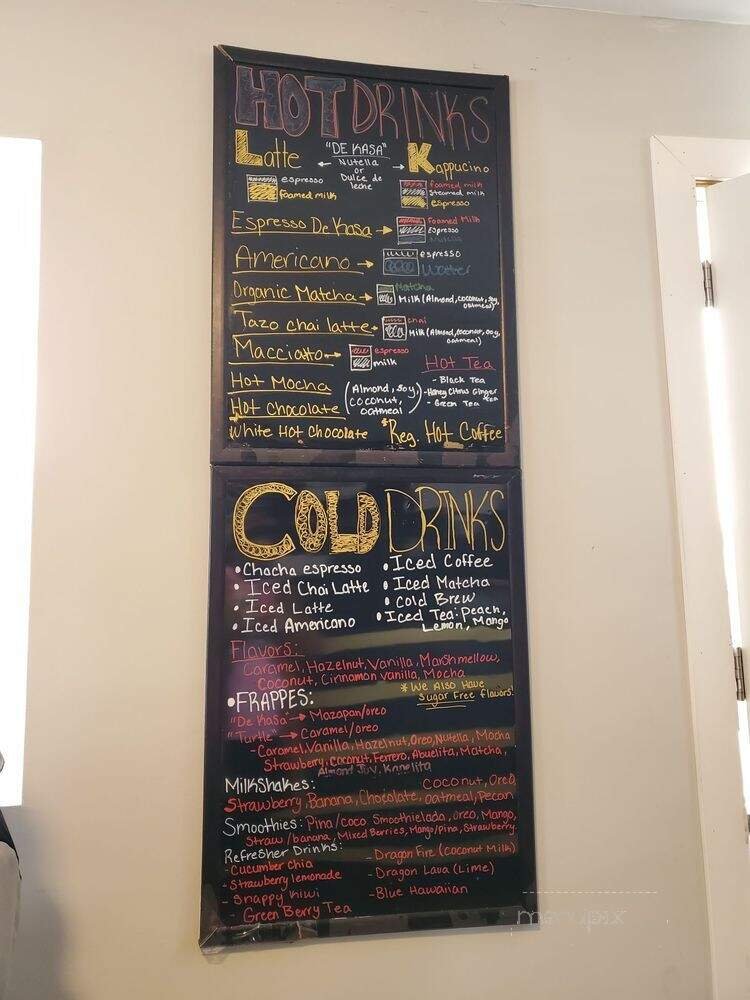 HOT DRINKS
Latte "DE KASA" Kappucino
Nutella
or
Dulce de
leche
espresso
foamed milk
foamed milk
steamed milk
espresso
Espresso De Kasa
foamed Milk
Espresso
Americano
espresso
Water
Organic Matcha
Matcha
Milk (Almond, coconut, soy,
oatmeal)
Tazo chai latte
chai
Milk (Almond, coconut, soy,
oatmeal)
Macciatto
espresso
milk
Hot Tea
- Black Tea
- Honey Citrus Ginger
tea
- Green Tea
Hot Mocha
Hot chocolate
(Almond, soy,
coconut,
oatmeal)
White Hot Chocolate *Reg. Hot Coffee
COLD DRINKS
• Chacha espresso
• Iced Chai Latte
• Iced Latte
• Iced Americano
• Iced Coffee
• Iced Matcha
• Cold Brew
• Iced Tea: Peach,
Lemon, Mango
Flavors:
Caramel, Hazelnut, Vanilla, Marshmellow,
Coconut, Cinnamon vanilla, Mocha
* We Also Have
Sugar Free flavors!
• FRAPPES:
"De Kasa" → Mazapan/oreo
"Turtle" → Caramel/oreo
- Caramel, Vanilla, Hazelnut, Oreo, Nutella, Mocha
Strawberry, Coconut, Ferrero, Abuelita, Matcha,
Almond Joy, Kanelita
MilkShakes: Coconut, Oreo,
Strawberry, Banana, Chocolate, oatmeal, Pecan
Smoothies: Pina/coco Smoothielada, oreo, Mango,
Straw/banana, Mixed Berries, Mango/pina, Strawberry.
Refresher Drinks:
- Cucumber chia
- Strawberry lemonade
- Snappy Kiwi
- Green Berry Tea
- Dragon Fire (Coconut Milk)
- Dragon Lava (Lime)
- Blue Hawaiian
menupix